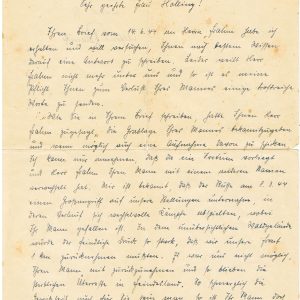 Sehr geehrte Frau Holling!
Ihren Brief vom 14.6.44 an Herrn habe ich
erhalten und will versuchen, Ihnen nach bestem Wissen
darauf eine Antwort zu schreiben. Leider weilt Herr
nicht mehr unter uns und so ist es meine
Pflicht Ihnen zum Verlust Ihres Mannes einige trostreiche
Worte zu senden.
Wie Sie in Ihrem Brief schreiben, hatte Ihnen Herr
zugesagt, die Grablage Ihres Mannes bekanntzugeben
und wenn möglich auch eine Aufnahme davon zu schicken.
Ich kann nur annehmen, daß da ein Irrtum vorliegt
und Herr Ihren Mann mit einem anderen Kameraden
verwechselt hat. Mir ist bekannt, daß der Russe am 8.3.44
einen Großangriff auf unsere Stellungen unternahm, in
deren Verlauf sich wechselvolle Kämpfe abspielten, wobei
Ihr Mann gefallen ist. In dem unübersichtlichen Waldgelände
wurde der feindliche Druck so stark, daß wir unsere Front
1 km zurücknehmen mußten. Es war uns nicht möglich,
Ihren Mann mit zurückzunehmen und so blieben die
sterblichen Überreste in Feindesland. So schmerzlich die
für Sie sein mag, so ist Ihr Mann doch